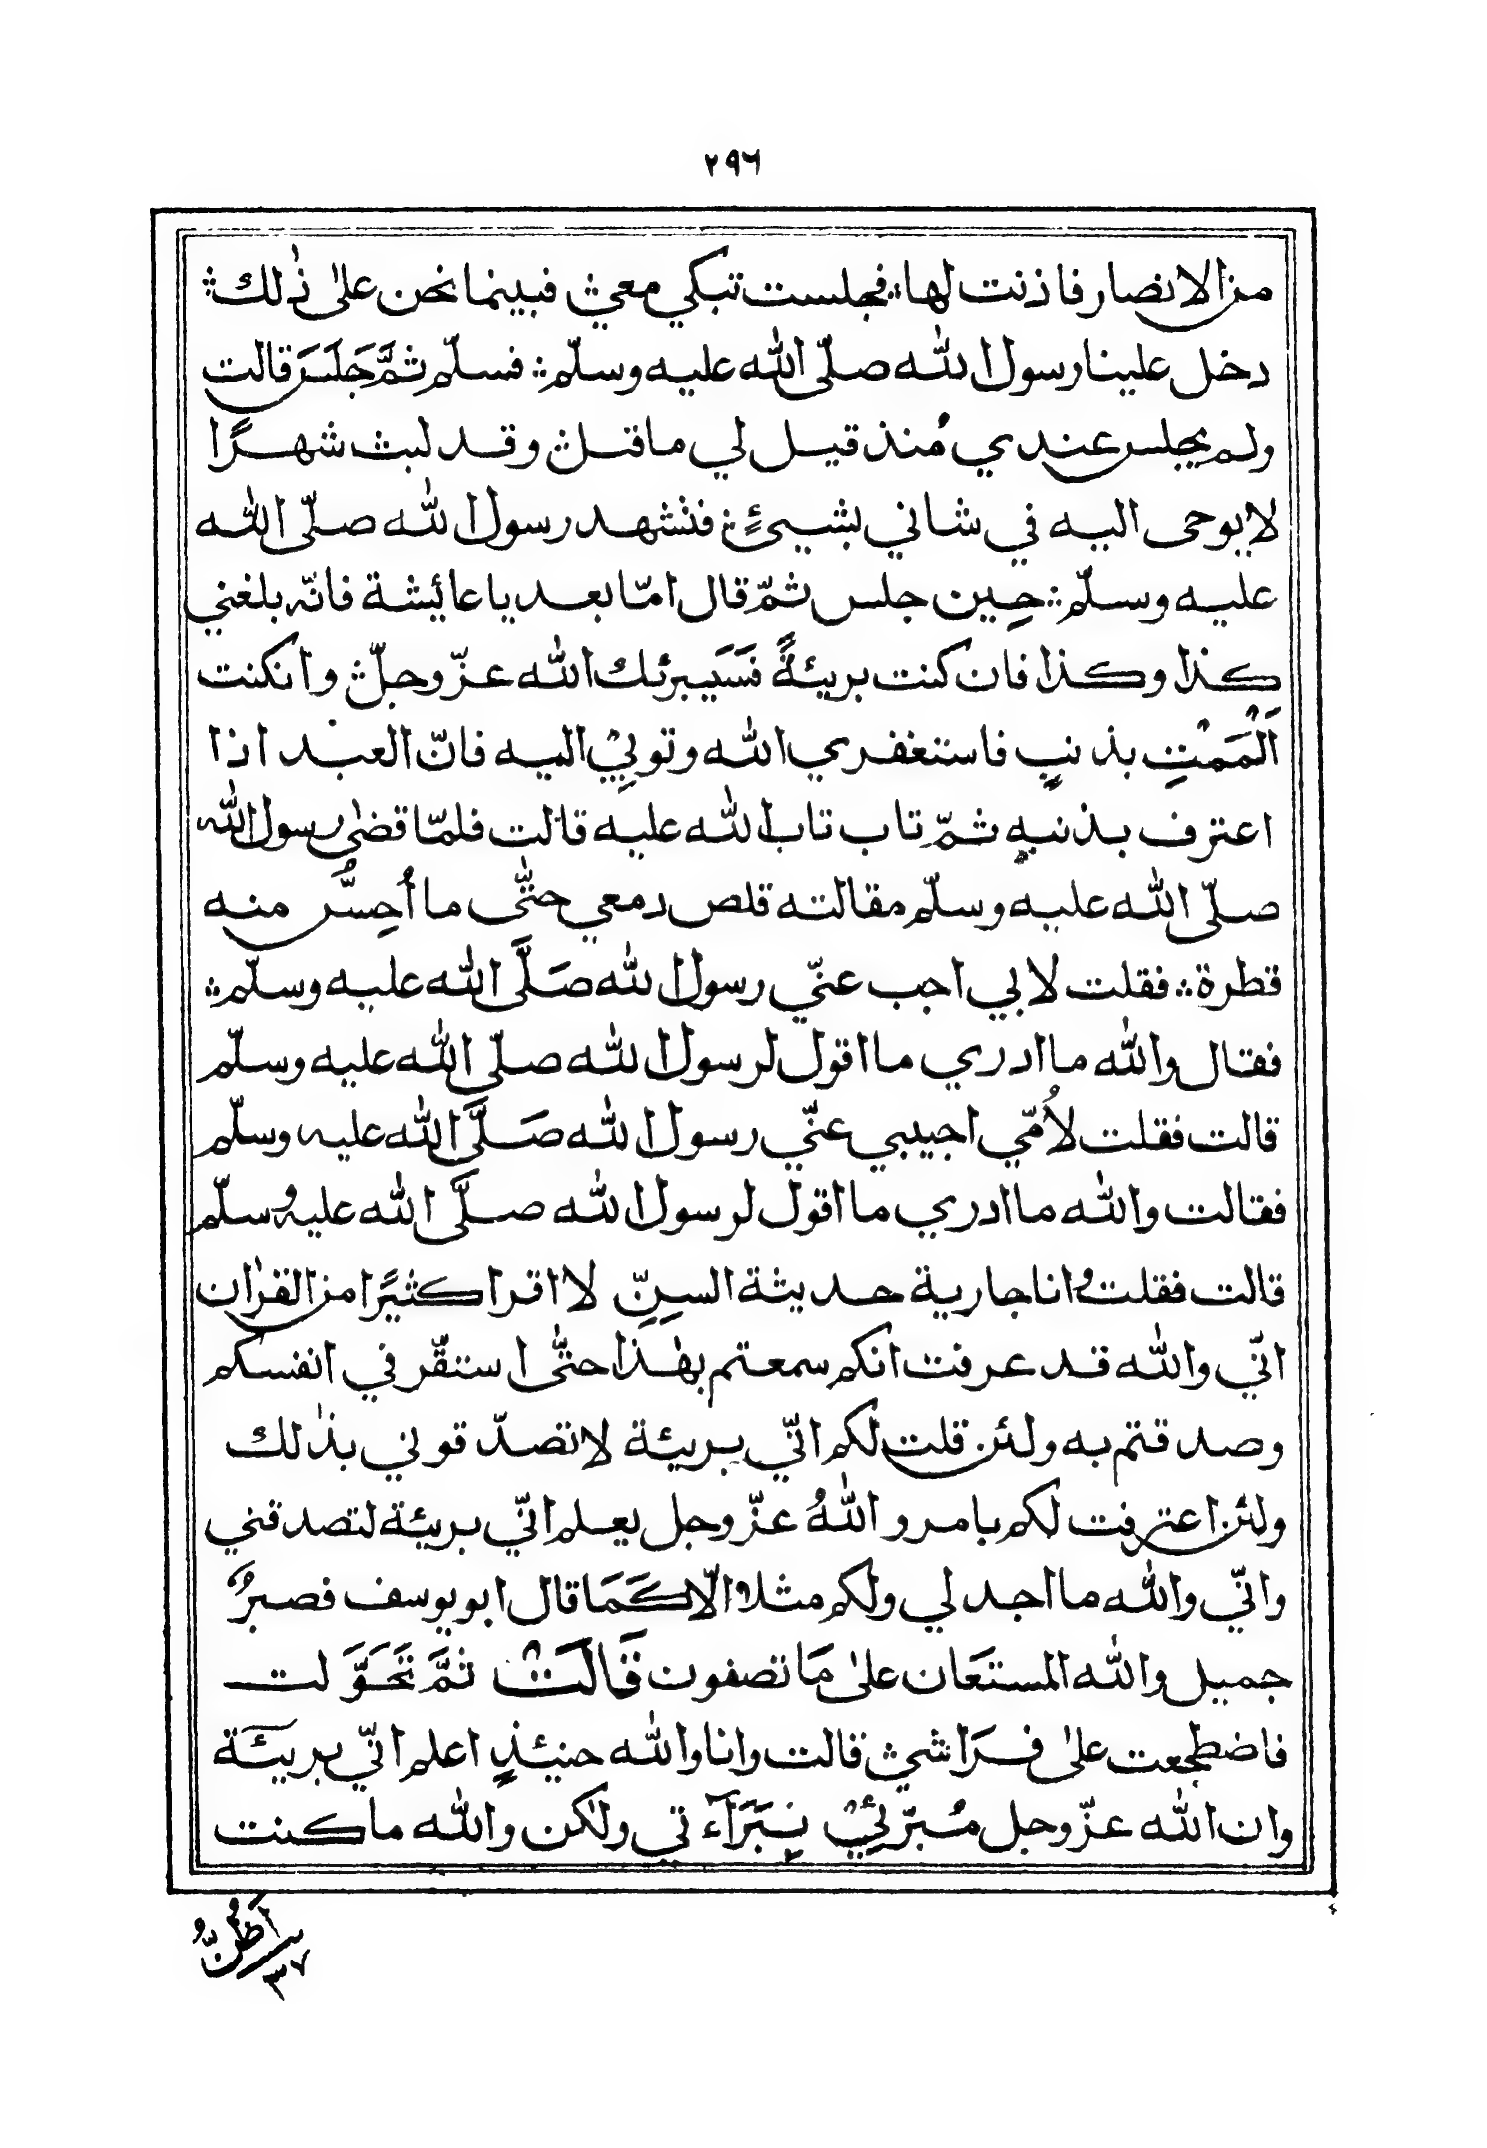 ٢٩٦
من الانصار فاذنت لها؞ فجلست تبكي معي؞ فبينما نحن على ذٰلك؞
دخل علينا رسول الله صلّى الله عليه وسلّم؞ فسلّم ثمَّ جَلَسَ قالت
ولم يجلس عندي مُنذ قيل لي ما قيل؞ وقد لبث شهرًا
لا يوحى اليه في شاني بشيئٍ؞ فتشهد رسول الله صلّى الله
عليه وسلّم؞ حِين جلس ثمّ قال امّا بعد يا عائيشة فانّه بلغني
كذا وكذا فان كنت بريئةً فسَيَبرئك الله عزّ وجلّ؞ وان كنت
اَلْمَمْتِ بذنبٍ فاستغفري الله وتوبِيْ اليه فانّ العبد اذا
اعترف بذنبهٖ ثمّ تاب تاب الله عليه قالت فلمّا قضٰى رسول الله
صلّى الله عليه وسلّم مقالته قلص دمعي حتّٰى ما اُحِسُّ منه
قطرة؞ فقلت لابي اجب عنّي رسول الله صَلَّى الله عليه وسلّم؞
فقال والله ما ادري ما اقول لرسول الله صلّى الله عليه وسلّم
قالت فقلت لاُمّي اجيبي عنّي رسول الله صَلَّى الله عليه وسلّم
فقالت والله ما ادري ما اقول لرسول الله صلَّى الله عليه وسلّم
قالت فقلت وانا جارية حديثة السِنِّ لا اقرا كثيًرا من القرٰان
انّي والله قد عرفت انكم سمعتم بهٰذا حتّٰى استقّر في انفسكم
وصدقتم به ولئن قلت لكم انّي بريئة لا تصدّقوني بذٰلك
ولئن اعترفت لكم بامر واللهُ عزّ وجل يعلم انّي بريئة لتصدقني
وانّي والله ما اجد لي ولكم مثلا الّا كَمَا قال ابو يوسف فصبرٌ
جميل والله المستعَان علىٰ مَا تصفون قَالَتْ ثمَّ تَحَوَّلت
فاضطجعت علىٰ فرَاشي؞ قالت وانا والله حنيئذٍ اعلم انّي بريئَة
وان الله عزّ وجل مُبرّئِيْ بِبَرَآءَتي ولٰكن والله ما كنت
اَظُنُّ
٣٧